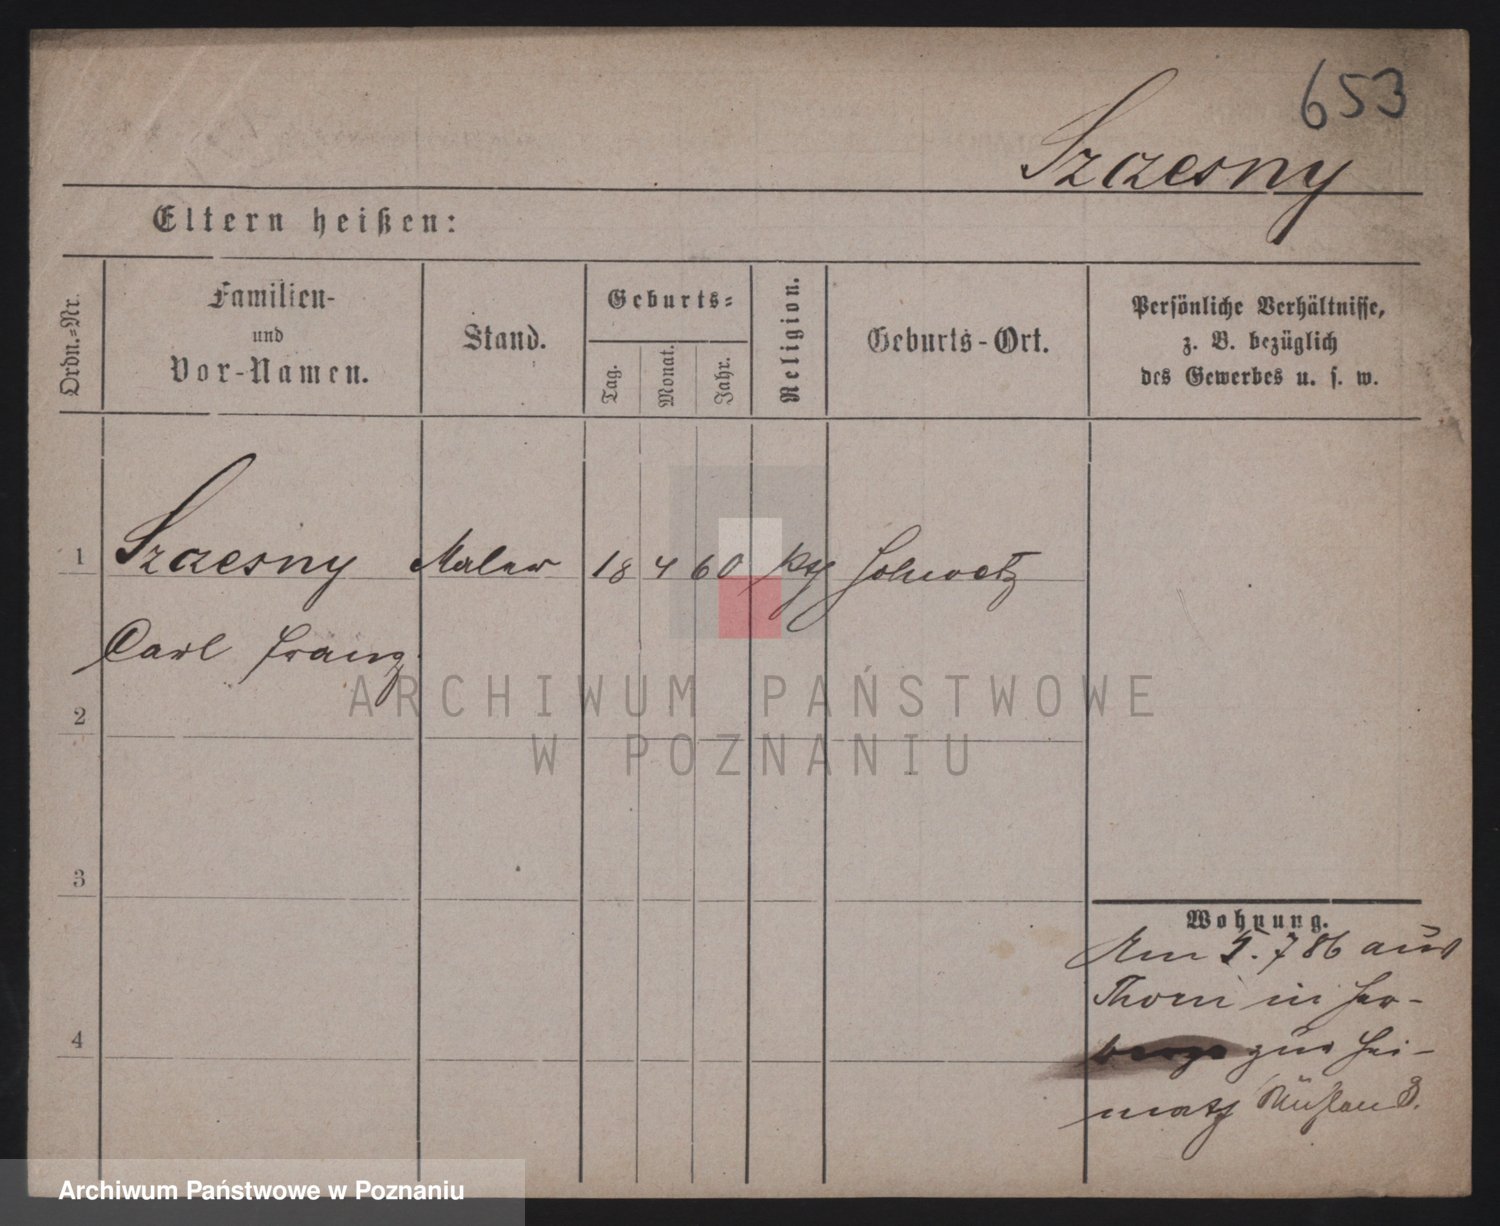 653
Szczesny
Eltern heißen:
Ordn.-Nr.
Familien-
und
Vor-Namen.
Stand.
Geburts-
Tag.
Monat.
Jahr.
Religion.
Geburts-Ort.
Persönliche Verhältnisse,
z. B. bezüglich
des Gewerbes u. s. w.
1
Szczesny Maler 18 4 60 Schwetz
Carl Franz
2
3
4
Wohnung.
Am 7 86 aus
Thorn in Her-
berge zur Hei-
math
ARCHIWUM PAŃSTWOWE
W POZNANIU
Archiwum Państwowe w Poznaniu